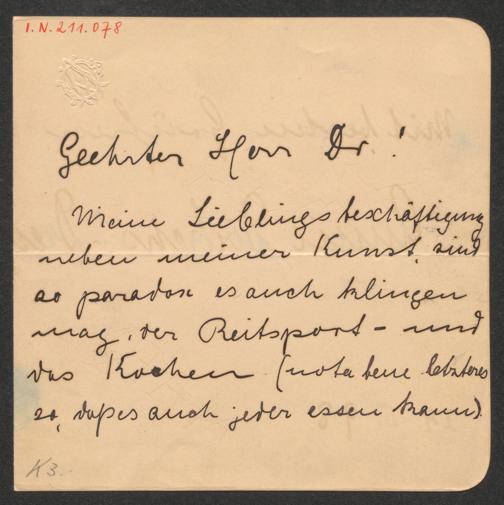 I.N. 211.078
Geehrter Herr Dr.!
Meine Lieblingsbeschäftigung
neben meiner Kunst, sind
so paradox es auch klingen
mag, der Reitsport – und
das Kochen (nota bene letzteres
so, daß es auch jeder essen kann).
K3.